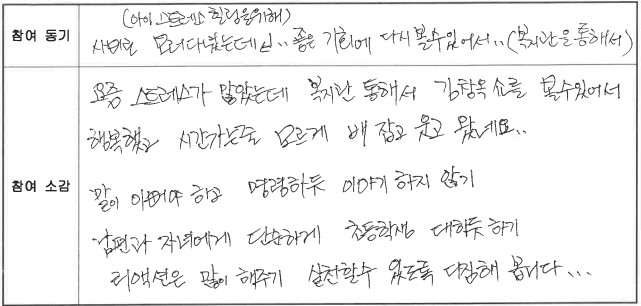 참여 동기
(아이 스트레스 힐링을 위해)
사비로 보러다녔는데.. 좋은 기회에 다시 볼수 있어서.. (복지관을 통해서)
참여 소감
요즘 스트레스가 많았는데 복지관 통해서 김창옥 쇼를 볼수 있어서
행복했고 시간가는줄 모르게 배 잡고 웃고 왔네요..
말이 이뻐야 하고 명령하듯 이야기 하지 않기
남편과 자녀에게 단순하게 초등학생 대하듯 하기
리액션은 많이 해주기 실천할수 있도록 다짐해 봅니다...